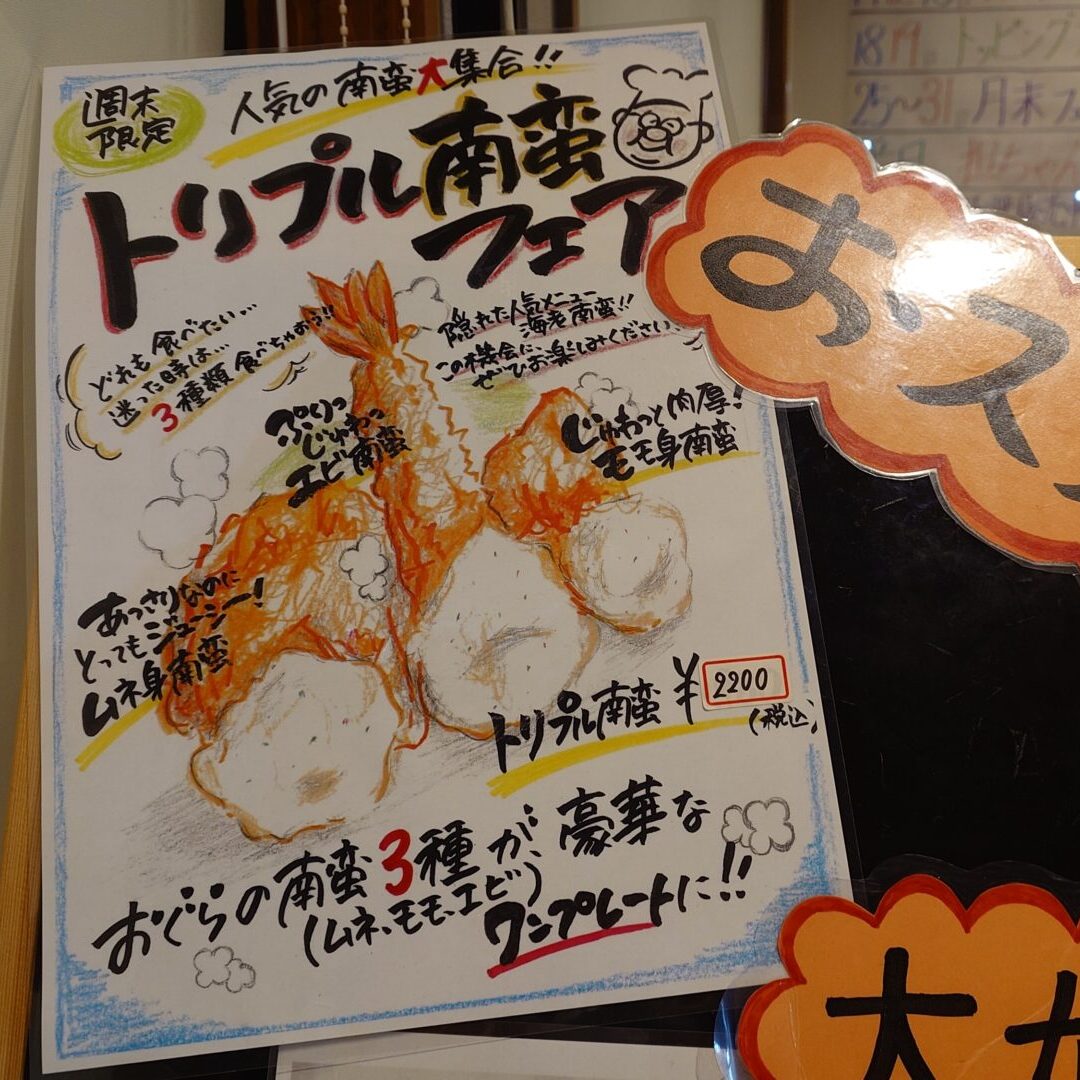 週末
限定
人気の南蛮大集合!!
トリプル南蛮
フェア
どれも食べたい…
迷った時は…
3種類食べちゃおう!!
隠れた人気メニュー
海老南蛮!!
この機会に、
ぜひお楽しみください
ぷりっ
じゅわっ
エビ南蛮
じゅわっと肉厚!
モモ身南蛮
あっさりなのに
とってもジューシー!
ムネ身南蛮
トリプル南蛮 ¥2200
(税込)
おぐらの南蛮3種が、豪華な
(ムネ、モモ、エビ)
ワンプレートに!!
18 19 トッピング
25〜31 月末フ
大